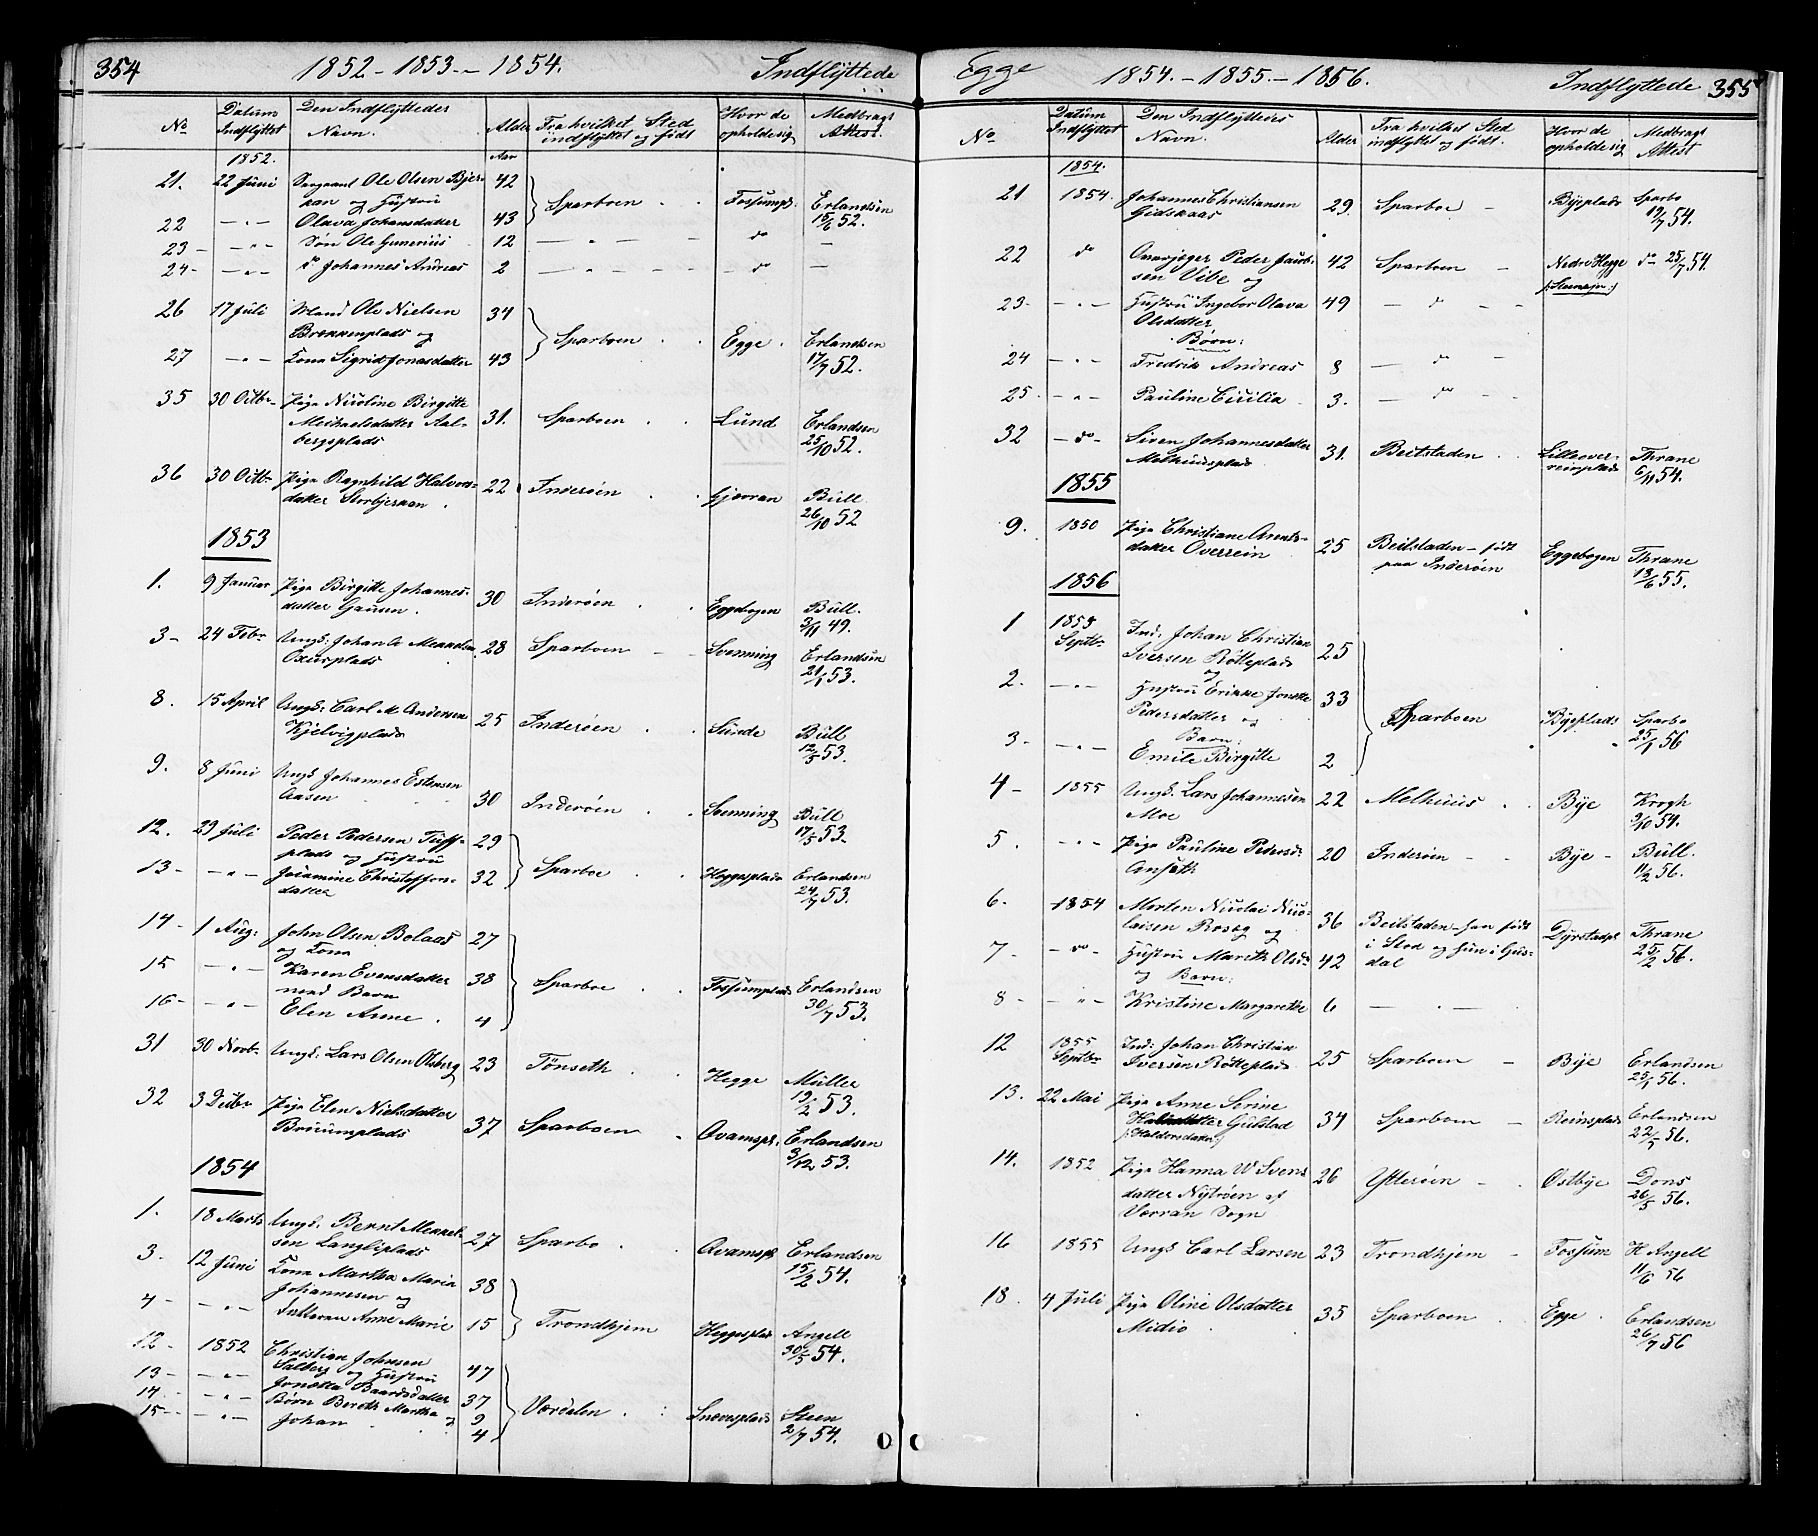 354 1852 - 1853 - 1854. Indflyttede
No Datum Indflyttet Den Indflytteders Navn. Alder Fra hvilket Sted indflyttet og født Hvor de opholde sig Medbragt Attest.
1852. Aar
21. 22 Juni Sergeant Ole Olsen Bjer- 42
kan og Hustru Sparboen Fossumpl. Erlandsen
22 - " - Olava Johansdatter 43 15/6 52.
23 - - " - Søn Ole Gunerius 12 — " — do —
24 - - " - do Johannes Andreas 2 — " — do —
26 17 Juli Mand Ole Nielsen 34
Brekkenplads og Sparboen Egge Erlandsen
27 - " - Kona Sigrid Jonasdatter 43 17/7 52.
35 30 Octbr Pige Nicoline Birgitte
Meikaelsdatter Aal- 31. Sparboen Lund Erlandsen
bergsplads 25/10 52.
36 30 Octbr Pige Ragnhild Halvors- 22 Inderøen Gjævran Bull
datter Storbjerkan 26/10 52
1853
1. 9 Januar Pige Birgitte Johannes- 30 Inderøen Eggebogen Bull.
datter Gausen 3/11 49.
3 - 24 Febr Ungk. Johan A Mekkelsen 28 Sparboen Svenning Erlandsen
plads 21/1 53.
8. 15 April Ungk. Carl M Andersen 25 Inderøen Sunde Bull
Kjelvigplads 12/5 53.
9. 8 Juni Ungk Johannes Estensen
Aasen 30 Inderøen Svenning Bull
17/5 53
12. 29 Juli Peder Pedersen Tuff- 29
plads og Hustru Sparboe Heggesplads Erlandsen
13 - - " - Joramine Christoffers- 32 24/7 53.
datter
14 - 1 Aug: John Olsen Bolaas 27
og Kona
15 - " - Karen Evensdatter 38 Sparboe Fossumplads Erlandsen
med Barn 30/7 53.
16 - - " - Elen Anne 4
31 30 Novbr Ungk: Lars Olsen Olsberg 23 Tönseth Hegge Müller
19/2 53.
32 3 Decbr Pige Elen Nielsdatter
Brüeumplads 37 Sparboen Qvamspl. Erlandsen
3/12 53.
1854
1. 18 Marts Ungk. Bernt Mekkel-
sen Langliplads 27 Sparbo Qvamspl Erlandsen
15/2 54.
3. 12 Juni Kona Martha Maria 38
Johannesen og Trondhjem Heggesplads Angell
4 - - " - Datteren Anne Marie 15 30/5 54.
12 - 1852 Christian Johnsen 47
Salberg og Hustru
13 - - " - Jonetta Baardsdatter 37 Værdalen Snevnplads Steen
14 - - " - Børn Bereth Martha og 9 2/7 54.
15 - - " - Johan 4
Egge 1854. - 1855. - 1856. Indflyttede 355
No Datum Indflyttet Den Indflytteders Navn. Alder Fra hvilket Sted indflyttet og født. Hvor de opholde sig Medbragt Attest
1854.
21 1854. Johannes Christiansen 29. Sparboe - Byeplads Sparbo
Gidskaas 19/7 54.
22 do Qvasjeger Peder Jacob- 42 Sparboen - Nedre Hegge do 25/7 54.
sen Vibe og
23 - - " - Hustru Ingebor Olava 49 — do —
Olsdatter
Børn:
24 - " - Fredrik Andreas 8 — do
25 - - " - Pauline Cicilia 3. — do
32 - do - Siren Johannesdatter 31. Beitstaden Lilleover- Thrane
Melhuusplads reinplads 6/11 54.
1855
9. 1850 Pige Christiane Arents- 25 Beitstaden - født Eggebogen Thrane
datter Overrein paa Inderøen 18/6 55.
1856
1 1853 Ind. Johan Christian 25
Septbr Iversen Rötteplads
og
2. - " - Hustru Erikke Jonetta 33
Pedersdatter og Sparboen Byeplads Sparbo
Barn: 25/1 56
3 - - " - Emile Birgitte 2
4 - 1855 Ungk. Lars Johannesen 22 Melhuus Bye Krogh
Moe 9/10 54.
5. - " - Pige Pauline Pedersd. 20 Inderøen - Bye - Bull.
Anseth 11/2 56.
6. 1854 Morten Nicolai Nico- 36 Beitstaden - han født Dyrstadpl Thrane
laisen Roseg og i Stod og hun i Gus- 25/2 56.
7 - - do - Hustru Marith Olsd. 42 dal
og Barn:
8 - - " - Kristine Margarethe 6 — " —
12 1855 Ind: Johan Christian
Septbr Iversen Rötteplads 25 Sparboen - Bye Erlandsen
25/1 56.
13. 22 Mai Pige Anne Serine 34 Sparboen - Reinsplads Erlandsen
Gulstad 22/5 56.
(Haldorsdatter)
14. 1852 Pige Hanna W Svens 26 Ytterøen - Østbye Dons
datter Nytrøen af 26/5 56.
Værran Sogn
16 1855 Ungk Carl Larsen 23 Trondhjem - Fossum H Angell
11/6 56
18. 4 Juli Pige Oline Olsdatter 35 Sparboen Egge. Erlandsen
Midio 26/7 56